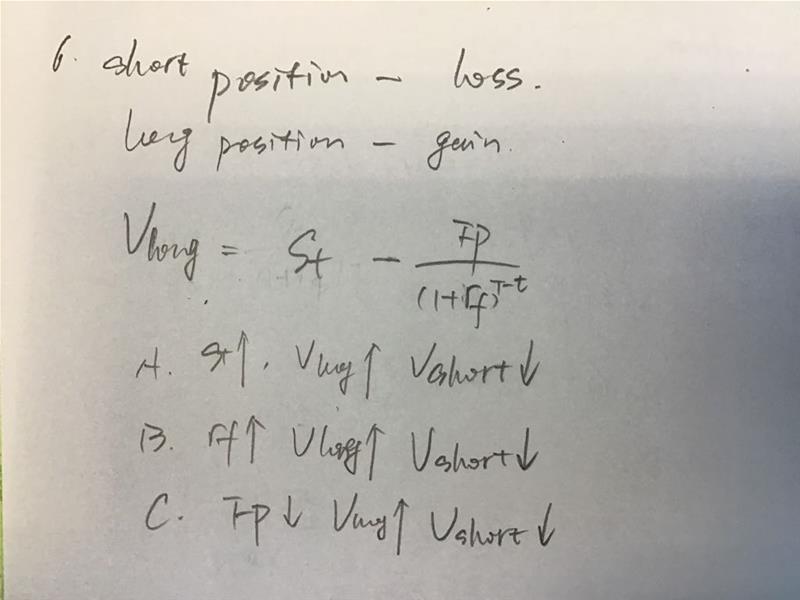 6. short position - loss.
long position - gain.
Vlong = St - FP / (1+rf)^T-t
A. St↑. Vlong↑ Vshort↓
B. rf↑ Vlong↑ Vshort↓
C. FP↓ Vlong↑ Vshort↓